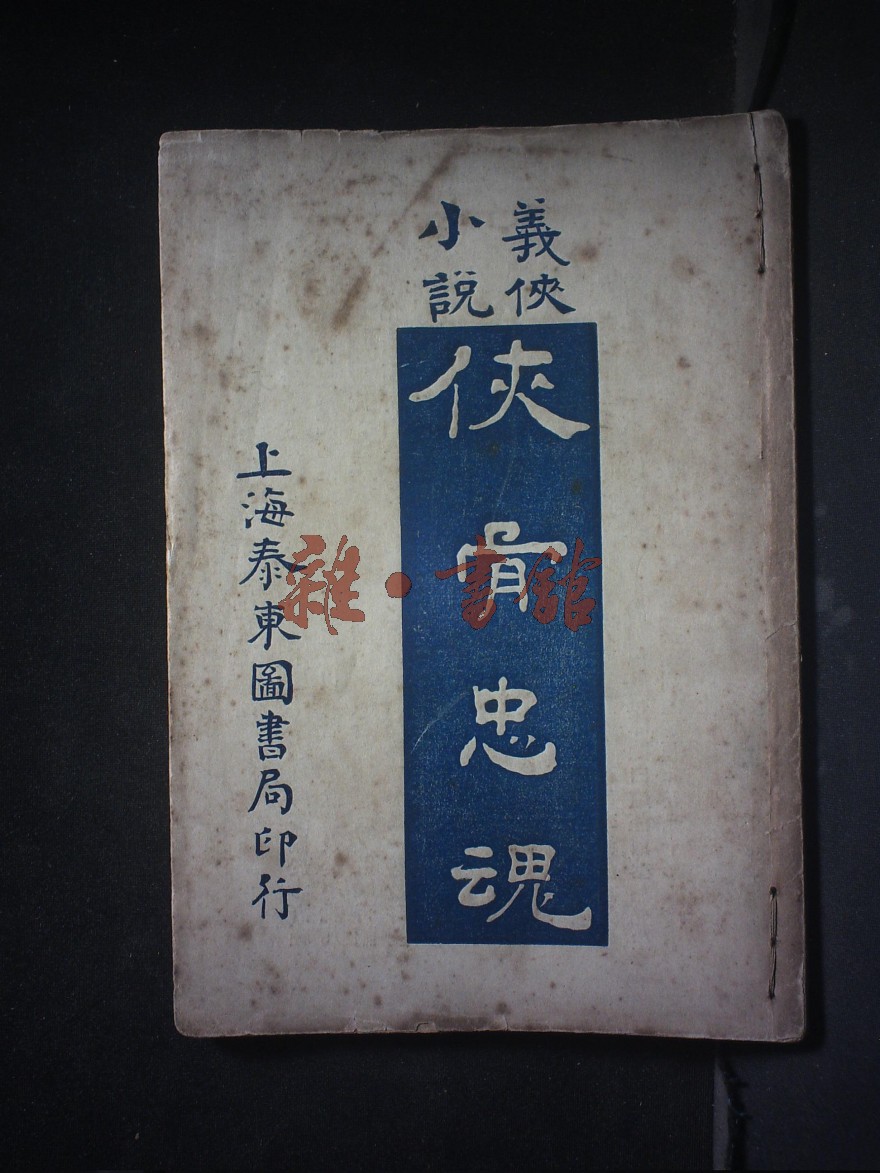 義俠
小說
俠骨忠魂
上海泰東圖書局印行
雜·書館